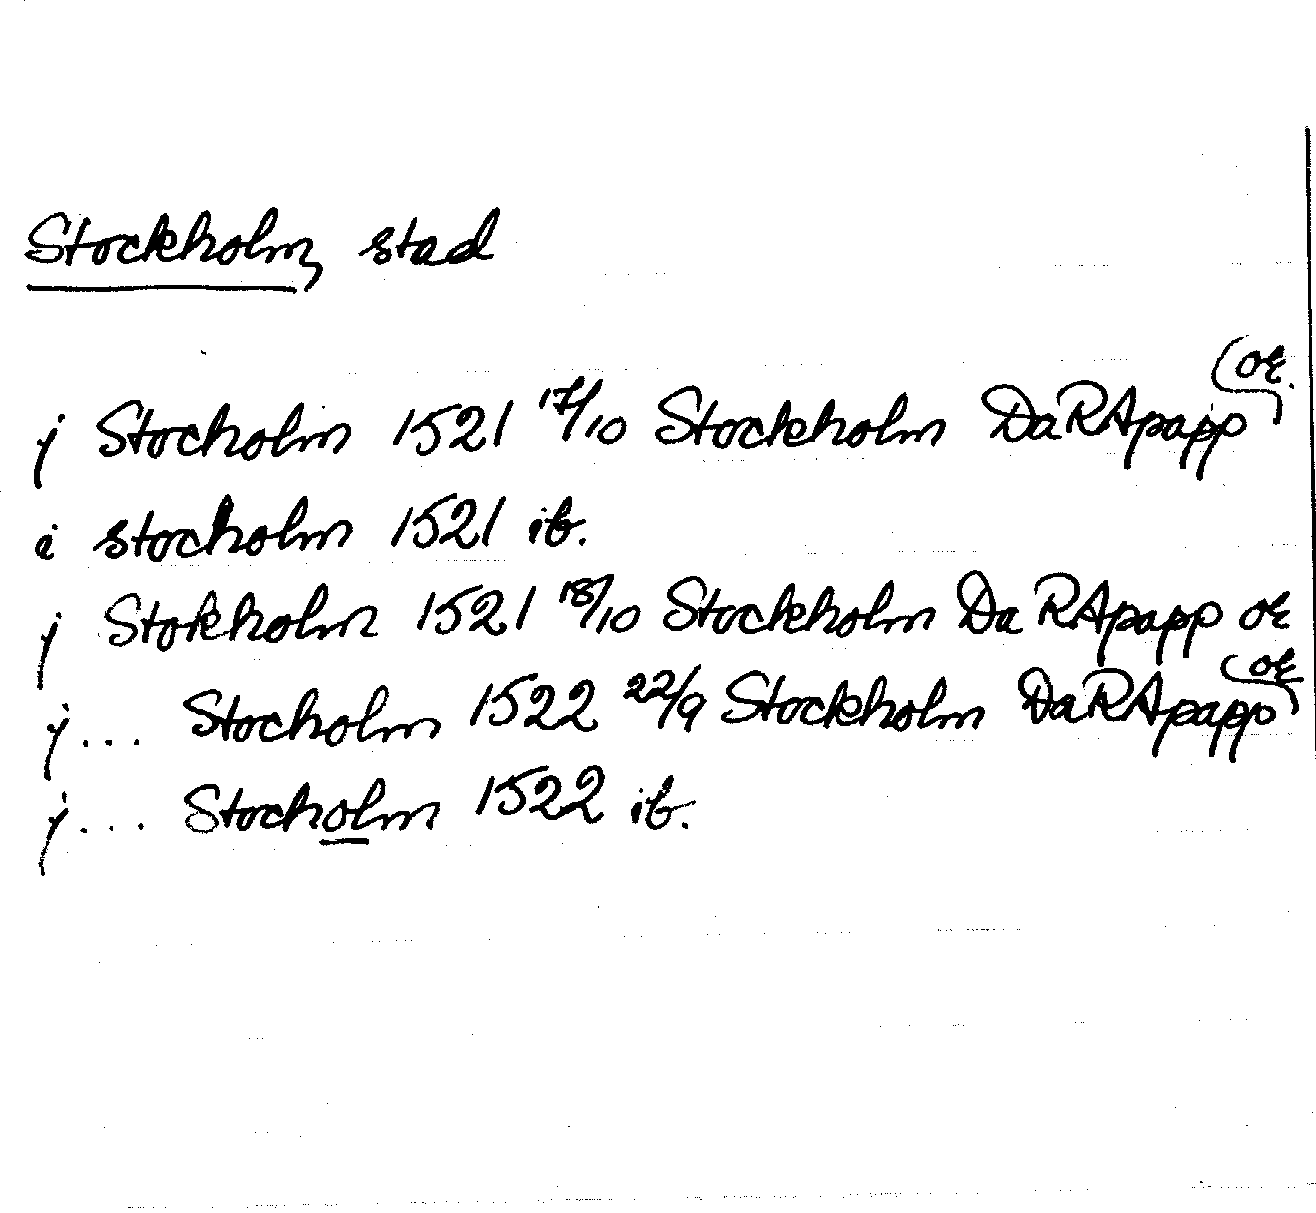 Stockholm, stad
j Stocholm 1521 17/10 Stockholm DaRApapp or.
i stocholm 1521 ib.
j Stokholm 1521 18/10 Stockholm DaRApapp or
j... Stocholm 1522 22/9 Stockholm DaRApapp or
j... Stocholm 1522 ib.